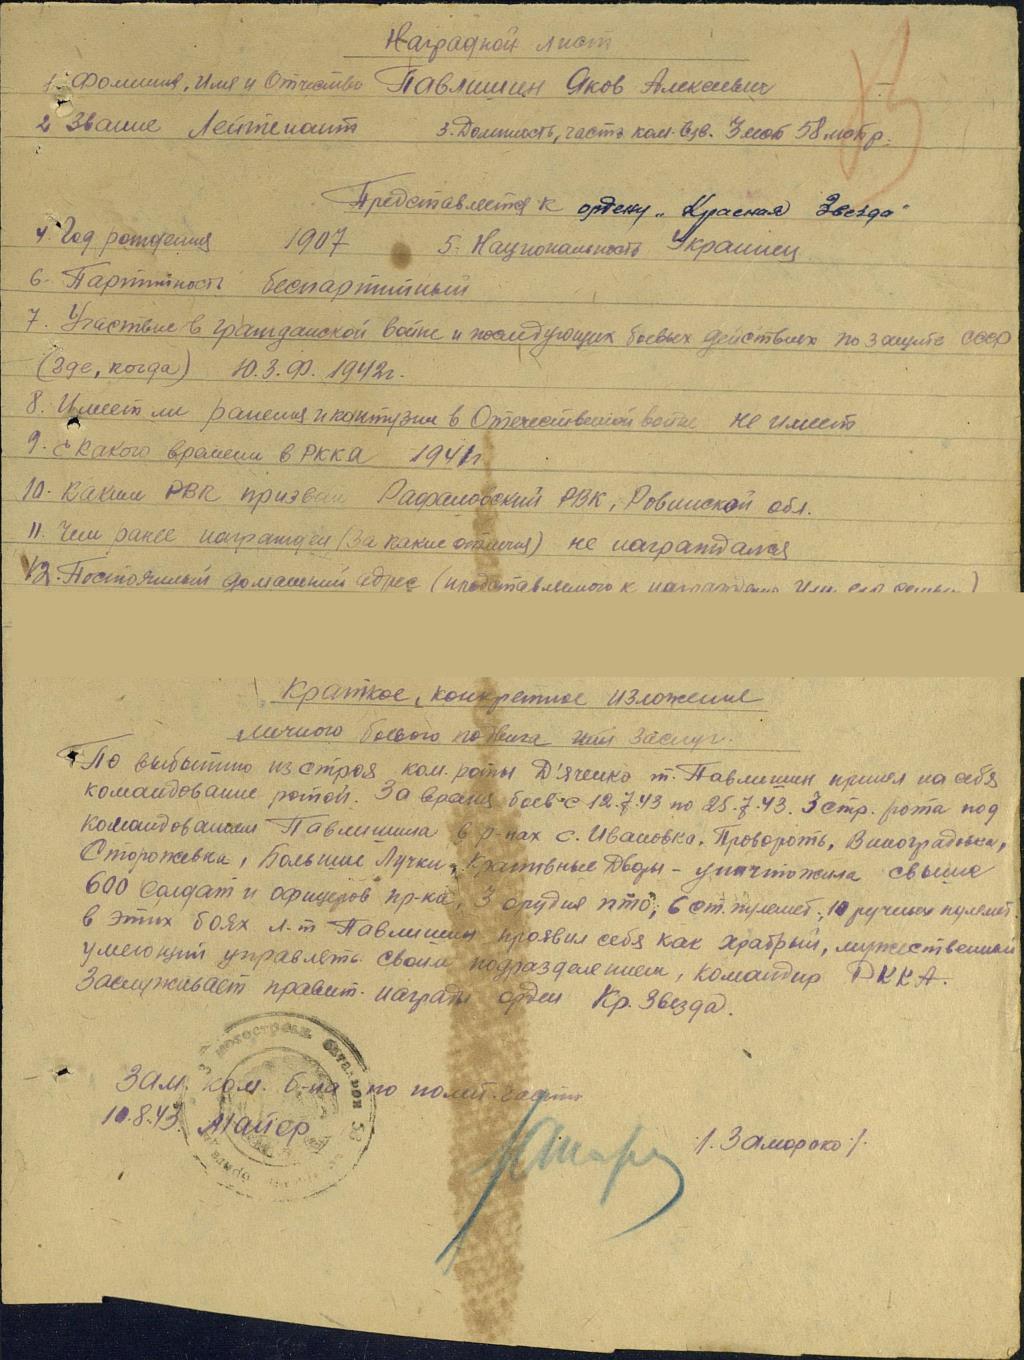 Наградной лист
1. Фамилия, Имя и Отчество Павлишин Яков Алексеевич
2 Звание Лейтенант 3. Должность, часть ком. взв. 3 мсб 58 мотбр.
Представляется к ордену „Красная Звезда"
4. Год рождения 1907 5. Национальность Украинец
6. Партийность беспартийный
7. Участие в гражданской войне и последующих боевых действиях по защите СССР
(где, когда) Ю.З.Ф. 1942г.
8. Имеет ли ранения и контузии в Отечественной войне не имеет
9. с какого времени в РККА 1941г
10. Каким РВК призван Рафаловский РВК, Ровинской обл.
11. Чем ранее награжден (за какие отличия) не награждался
12. Постоянный домашний адрес (представляемого к награждению или его семьи)
Краткое, конкретное изложение
личного боевого подвига или заслуг.
По выбытию из строя ком. роты Дъяченко т. Павлишин принял на себя
командование ротой. За время боев с 12.7.43 по 25.7.43. 3 стр. рота под
командованием Павлишина в р-нах с. Ивановка, Провороть, Виноградовка,
Сторожевка, Большие Лучки, Крапивные Дворы - уничтожила свыше
600 солдат и офицеров пр-ка, 3 орудия ПТО, 6 ст. пулемет., 10 ручных пулемет.
в этих боях л-т Павлишин проявил себя как храбрый, мужественный
умеющий управлять своим подразделением, командир РККА.
Заслуживает правит. награды орден Кр. Звезда.
Зам. ком. б-на по полит. части
10.8.43. Майор /. Замороко /.
мотострел. батальон 58